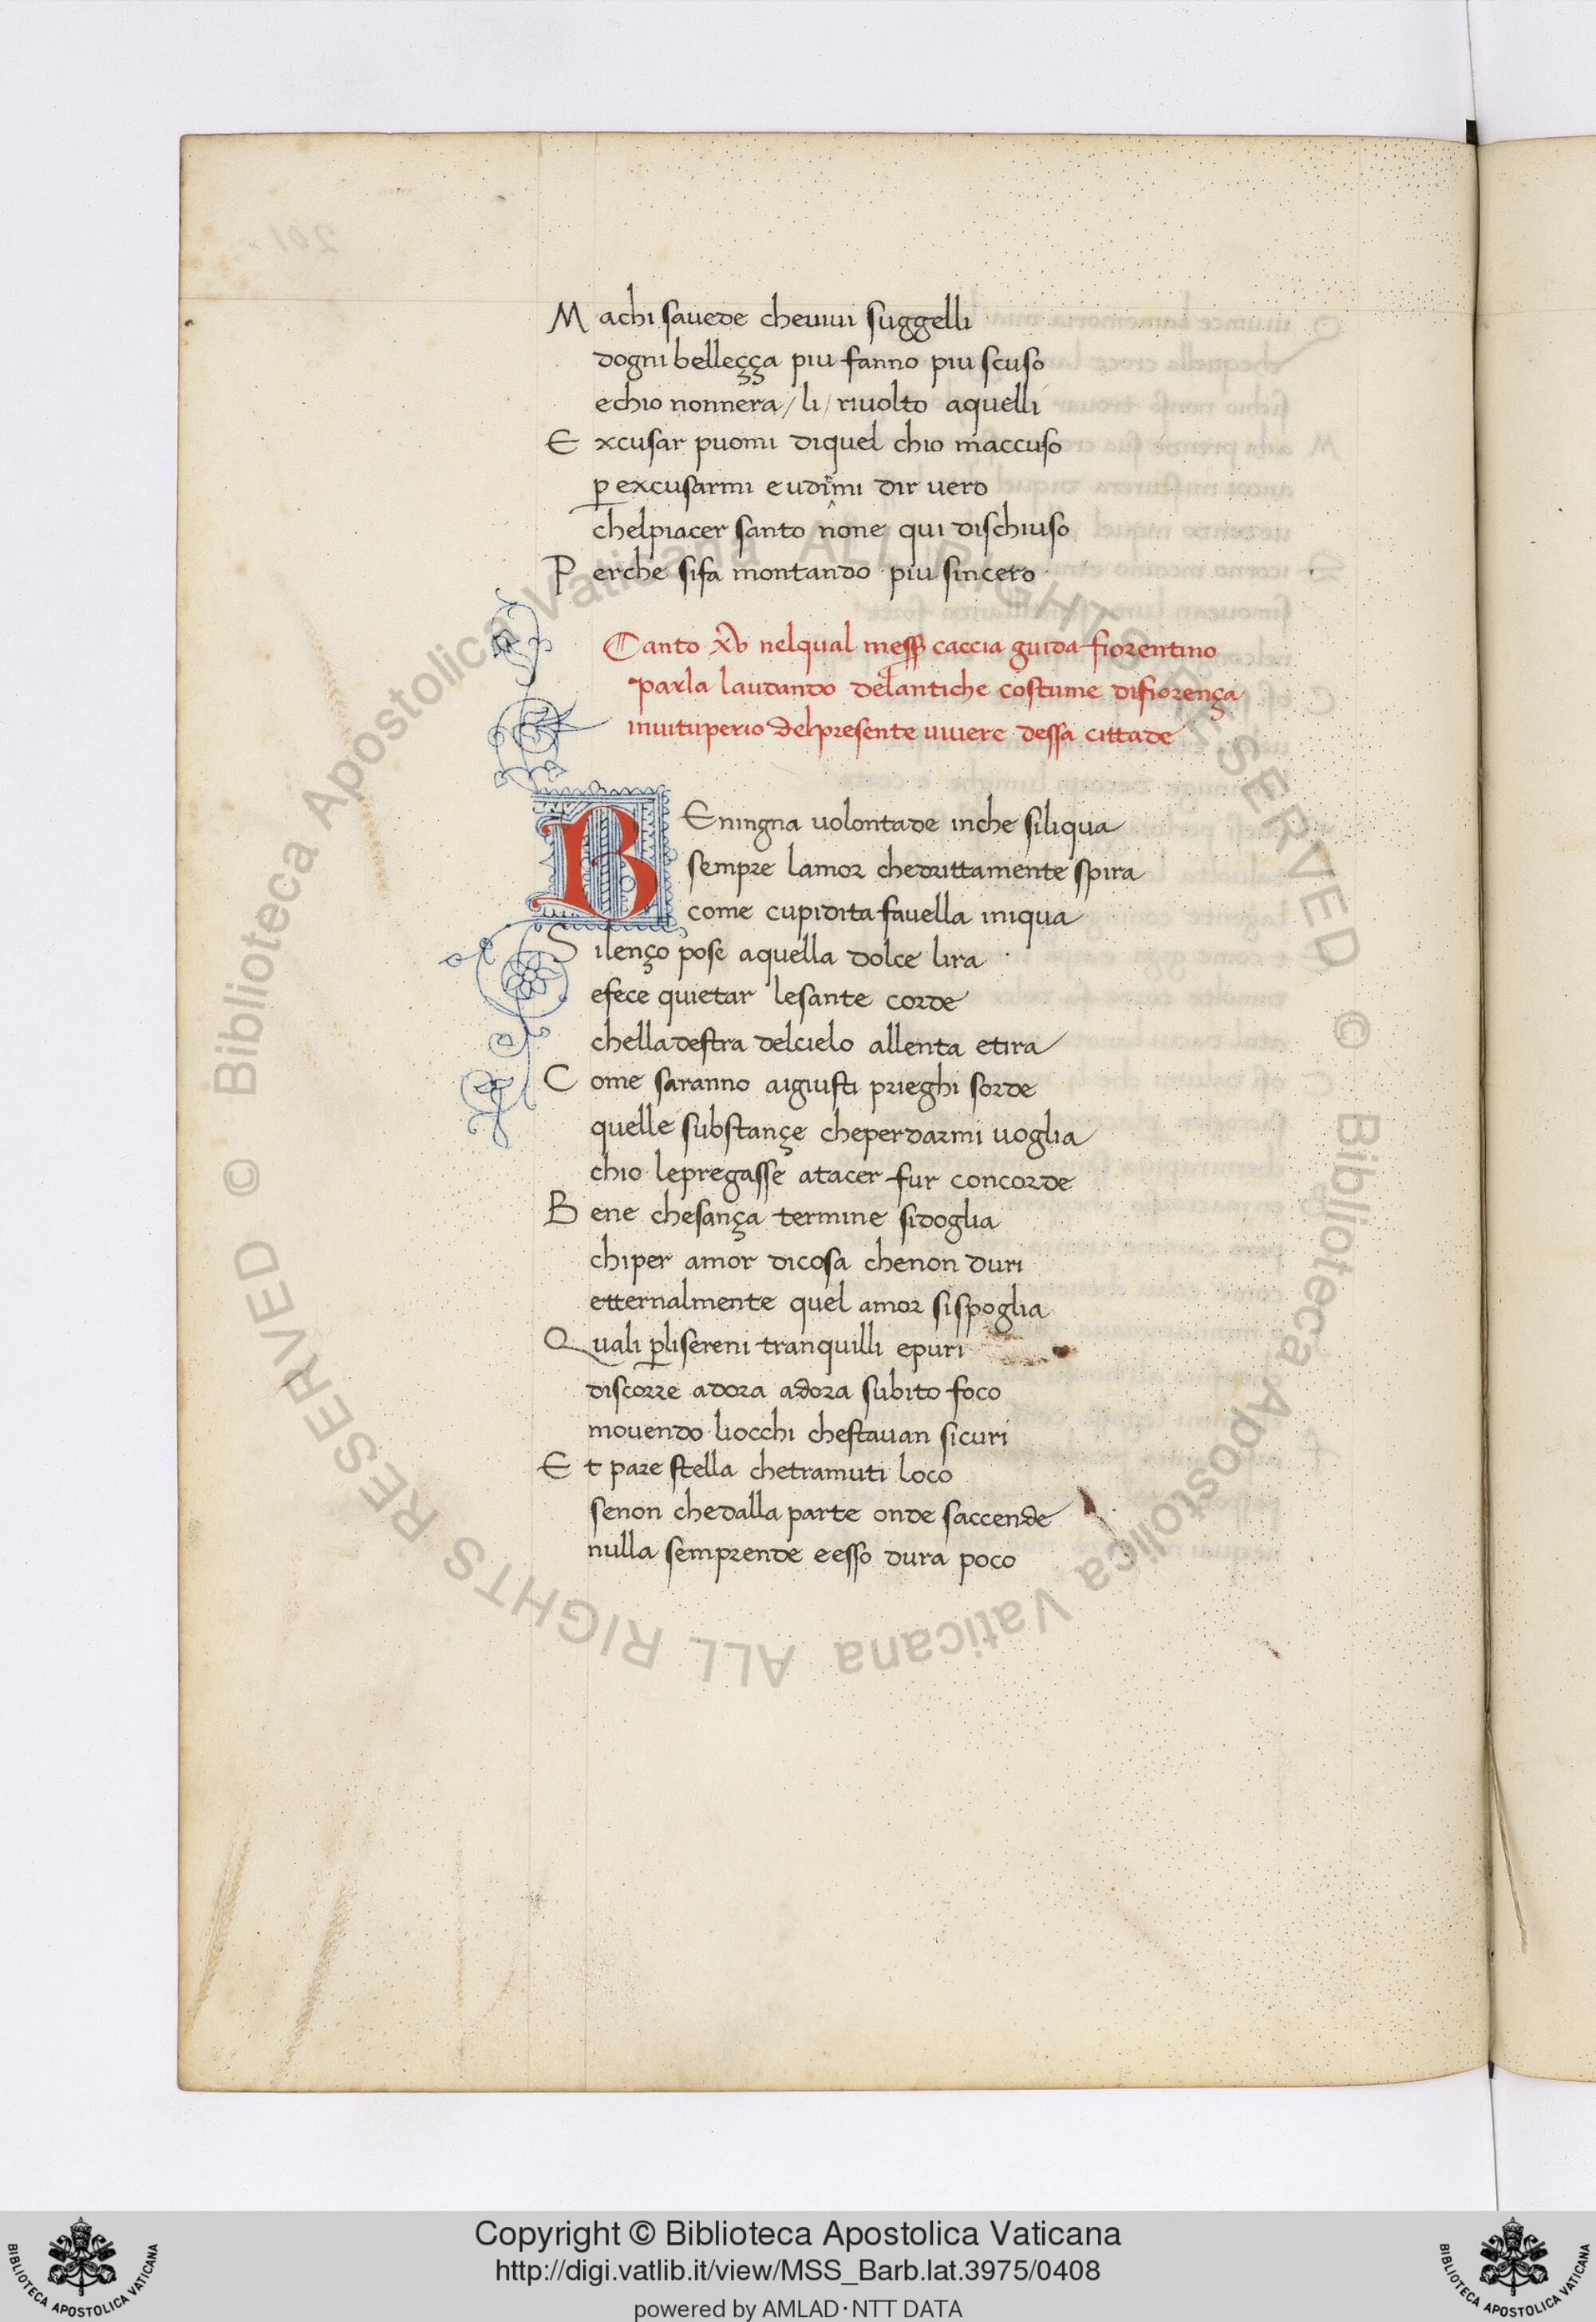 M achi sauede cheuiui suggelli
dogni belleçça piu fanno piu scuso
echio nonnera / li / riuolto aquelli
E xcusar puomi diquel chio maccuso
p excusarmi eudirmi dir uero
chelpiacer santo none qui dischiuso
P erche sifa montando piu sincero
Canto xv nelqual messer caccia guida fiorentino
parla laudando delantiche costume difiorença
inuituperio delpresente uiuere dessa cittade
B Eningna uolontade inche siliqua
sempre lamor chedrittamente spira
come cupidita fauella iniqua
S ilenço pose aquella dolce lira
efece quietar lesante corde
chella destra delcielo allenta etira
C ome saranno aigiusti prieghi sorde
quelle substançe cheperdarmi uoglia
chio lepregasse atacer fur concorde
B ene chesança termine sidoglia
chiper amor dicosa chenon duri
etternalmente quel amor sispoglia
Q uali plisereni tranquilli epuri
discorre adora adora subito foco
mouendo liocchi chestauan sicuri
E t pare stella chetramuti loco
senon chedalla parte onde saccende
nulla semprende eesso dura poco
© Biblioteca Apostolica Vaticana ALL RIGHTS RESERVED
© Biblioteca Apostolica Vaticana ALL RIGHTS RESERVED
Copyright © Biblioteca Apostolica Vaticana
http://digi.vatlib.it/view/MSS_Barb.lat.3975/0408
powered by AMLAD·NTT DATA
BIBLIOTECA APOSTOLICA VATICANA
BIBLIOTECA APOSTOLICA VATICANA